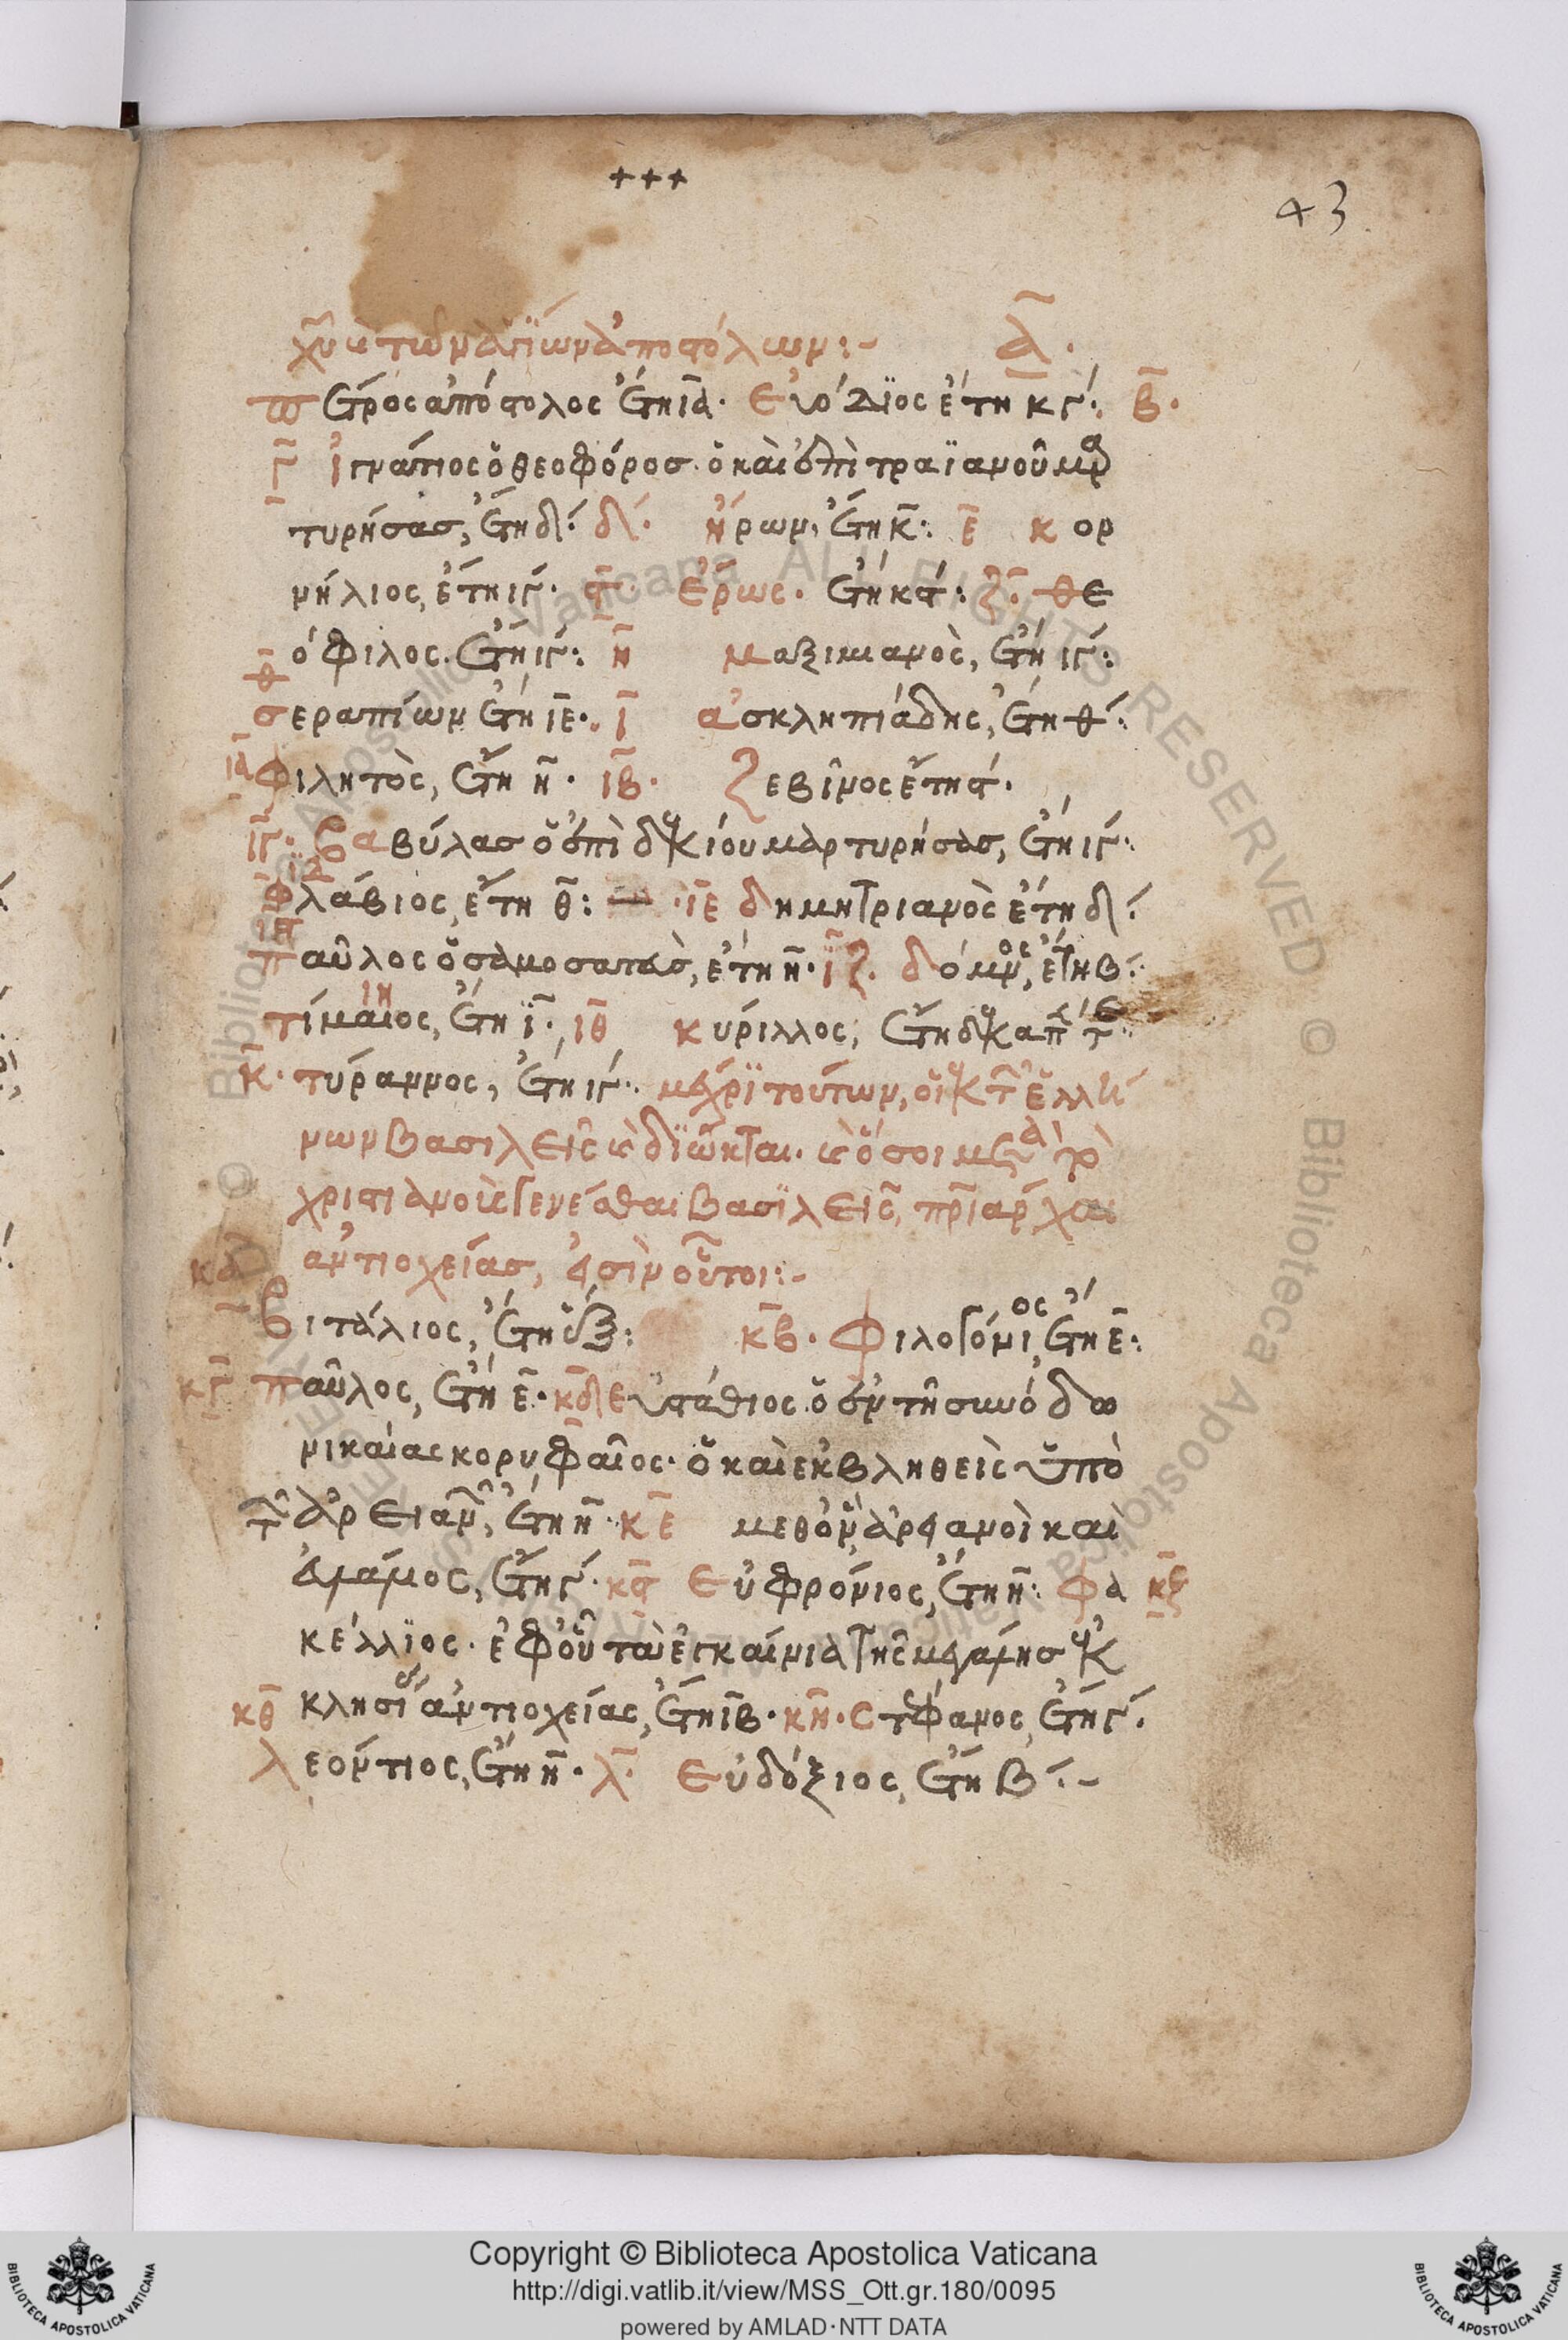 +++
43
χυ καὶ τῶν ἁγίων ἀποστόλων:- α̅.
πέτρος ἀπόστολος ἔτη ια̅· εὐόδιος ἔτη κγ: β̅·
γ̅ ἰγνάτιος ὁ θεοφόροσ· ὁ καὶ ἐπὶ τραϊανοῦ μαρ
τυρήσασ, ἔτη δ: δ· ἥρων, ἔτη κ̅: ε̅ κορ
νήλιος, ἔτη ιγ· ϛ̅· ἔρως· ἔτη κϛ: ζ̅· θε
όφιλος· ἔτη ιγ: η̅ μαξιμιανὸς, ἔτη ιγ:
θ̅
σεραπίων ἔτη ιε̅· ι̅ ἀσκληπιάδης, ἔτη θ:
ια̅ φιλητὸς, ἔτη η̅· ιβ̅· ζεβῖνος ἔτη ϛ·
ιγ̅· βαβύλασ ὁ ἐπὶ δεκίου μαρτυρήσασ, ἔτη ιγ:
ιδ
φλάβιος, ἔτη θ̅: ιε̅ δημητριανὸς ἔτη δ:
ιϛ
παῦλος ὁ σαμοσατεὺσ, ἔτη η̅· ιζ̅. δόμνος, ἔτη β:
ιη
τίμαιος, ἔτη ι̅·, ιθ̅ κύριλλος, ἔτη δεκαπέντε:
κ̅· τύραννος, ἔτη ιγ: μέχρι τούτων, οἱ ἐκ τῶν ἑλλή
νων βασιλεῖς καὶ διῶκται· καὶ ὅσοι μετὰ τὸ
χριστιανοὺς γενέσθαι βασιλεῖς, πριάρχαι
ἀντιοχείασ, εἰσὶν οὗτοι:-
κα̅
βιτάλιος, ἔτη ἕξ: κβ̅· φιλογόνιος, ἔτη ε̅:
κγ̅ παῦλος, ἔτη ε̅· κδ εὐστάθιος ὁ ἐν τῆ συνόδω
νικαίας κορυφαῖος· ὁ καὶ ἐκβληθεὶς ὑπὸ
τῶν ἀρειανῶν, ἔτη η̅· κε̅ μεθὃν, ἀρειανοὶ καὶ
εὐλάλιος, ἔτη γ· κϛ̅ εὐφρόνιος, ἔτη η̅: φλα κζ̅
κέλλιος· ἐφοὗ τὰ ἐγκαίνια τῆς μεγάλησ ἐκ
κλησίας ἀντιοχείας, ἔτη ιβ̅· κη̅· στέφανος, ἔτη γ:
κθ̅
λεόντιος, ἔτη η̅· λ̅· εὐδόξιος, ἔτη β:-
Copyright © Biblioteca Apostolica Vaticana
http://digi.vatlib.it/view/MSS_Ott.gr.180/0095
powered by AMLAD·NTT DATA
BIBLIOTECA APOSTOLICA VATICANA
BIBLIOTECA APOSTOLICA VATICANA